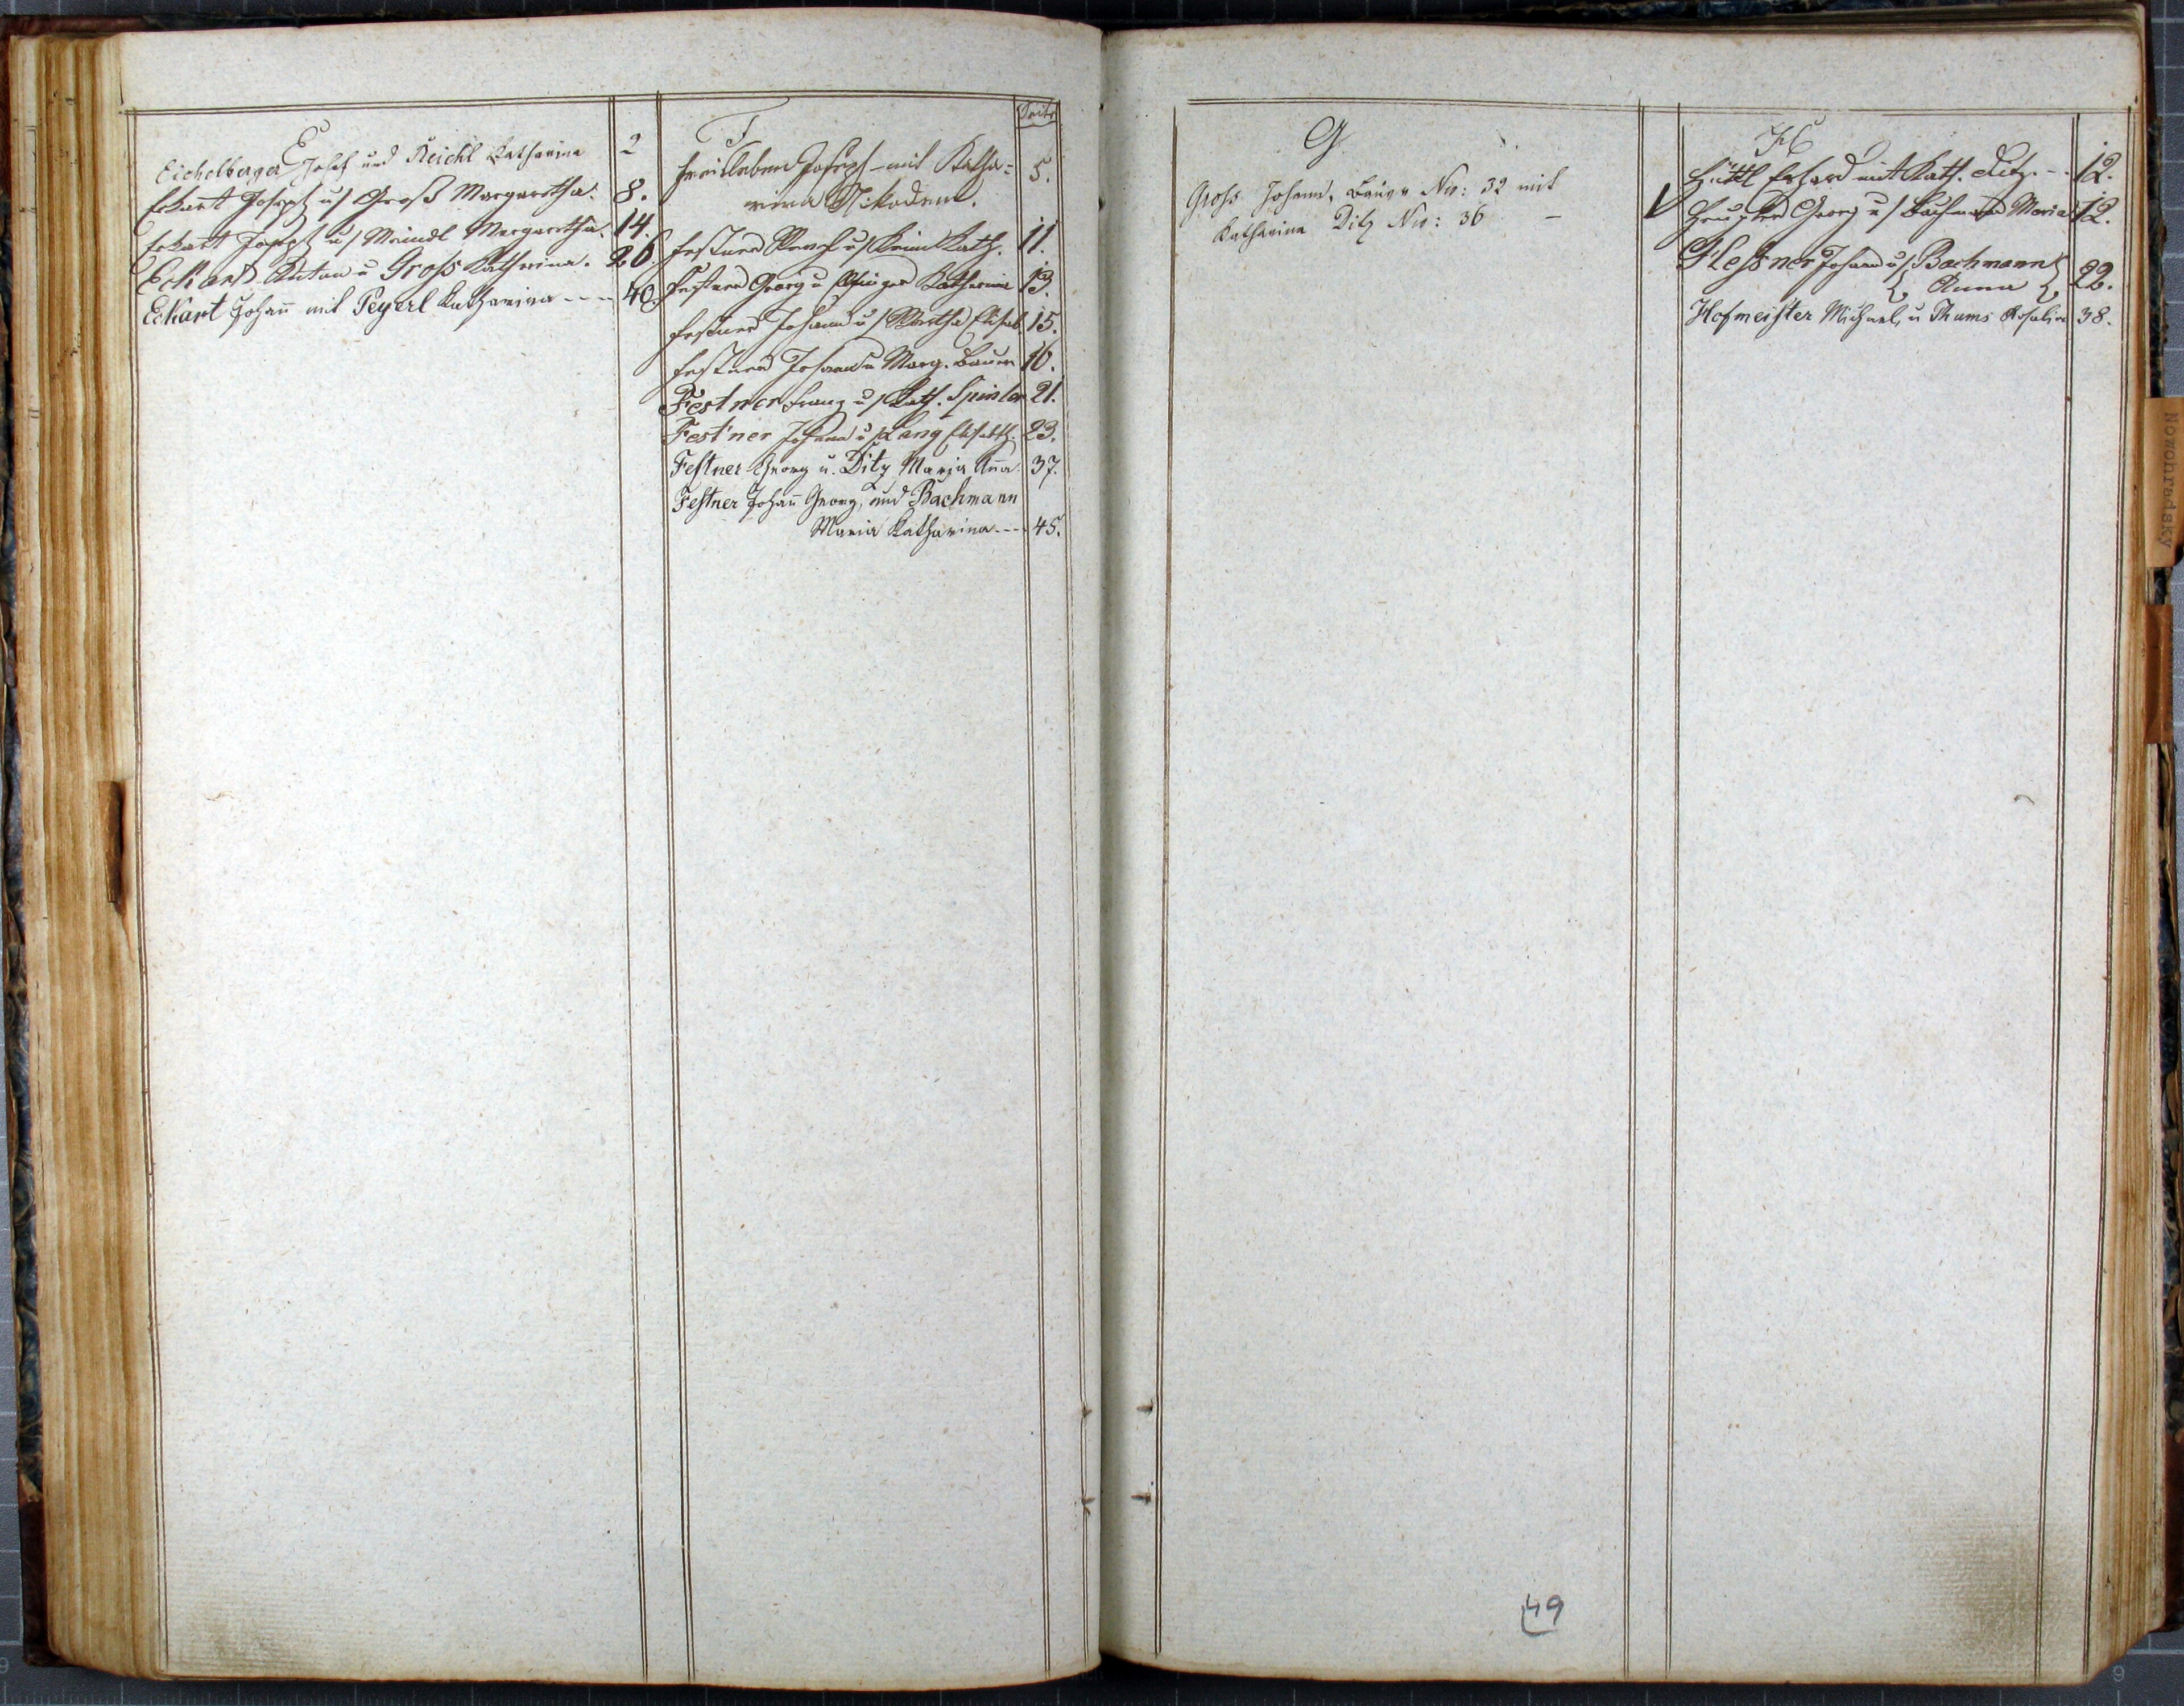 E
Eichelberger Josef und Reichl Katharina 2
Eckart Joseph u/ Groß Margaretha. 8.
Eckart Joseph u/ Meindl Margaretha. 14.
Eckart Anton u Gross Katharina. 26.
Eckart Johañ mit Peyerl Katharina --- 40.
F
Seite
Joseph - mit Katha= 5.
rina Nikodem.
Festner u/ Keim Kath. 11.
Festner Georg u Katharina 13.
Festner Johann u/ Elisab. 15.
Festner Johann u Marg. Bauer 16.
Festner Franz u/ Kath. Spinler 21.
Festner Johann u/ Lang Elisabeth. 23.
Festner Georg u. Ditz Maria Aña. 37.
Festner Johañ Georg, und Bachmann
Maria Katharina --- 45.
G
Gross Johann, Bauer Nro: 32 mit
Katharina Ditz Nro: 36 —
H
Hüttl Erhard mit Kath. Ditz. - 12.
Georg u/ Bachmann Maria 12.
Hessner Johann u/ Bachmann
Anna 22.
Hofmeister Michael, u Thums Rosalia 38.
49
Nowohradsky
9
9